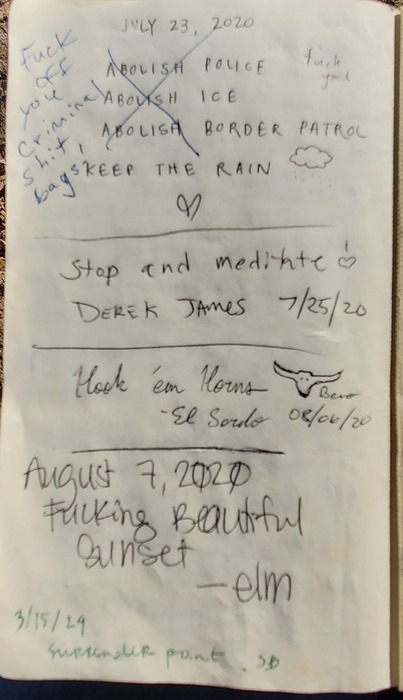 JULY 23, 2020
Fuck
off
you
criminal
shit
bags!
ABOLISH POLICE
fuck
you
ABOLISH ICE
ABOLISH BORDER PATROL
KEEP THE RAIN
Stop and meditate
DEREK JAMES 7/25/20
Hook 'em Horns
Bevo
-El Sordo 08/06/20
August 7, 2020
Fucking Beautiful
Sunset
—elm
3/15/24
surrender point. SD